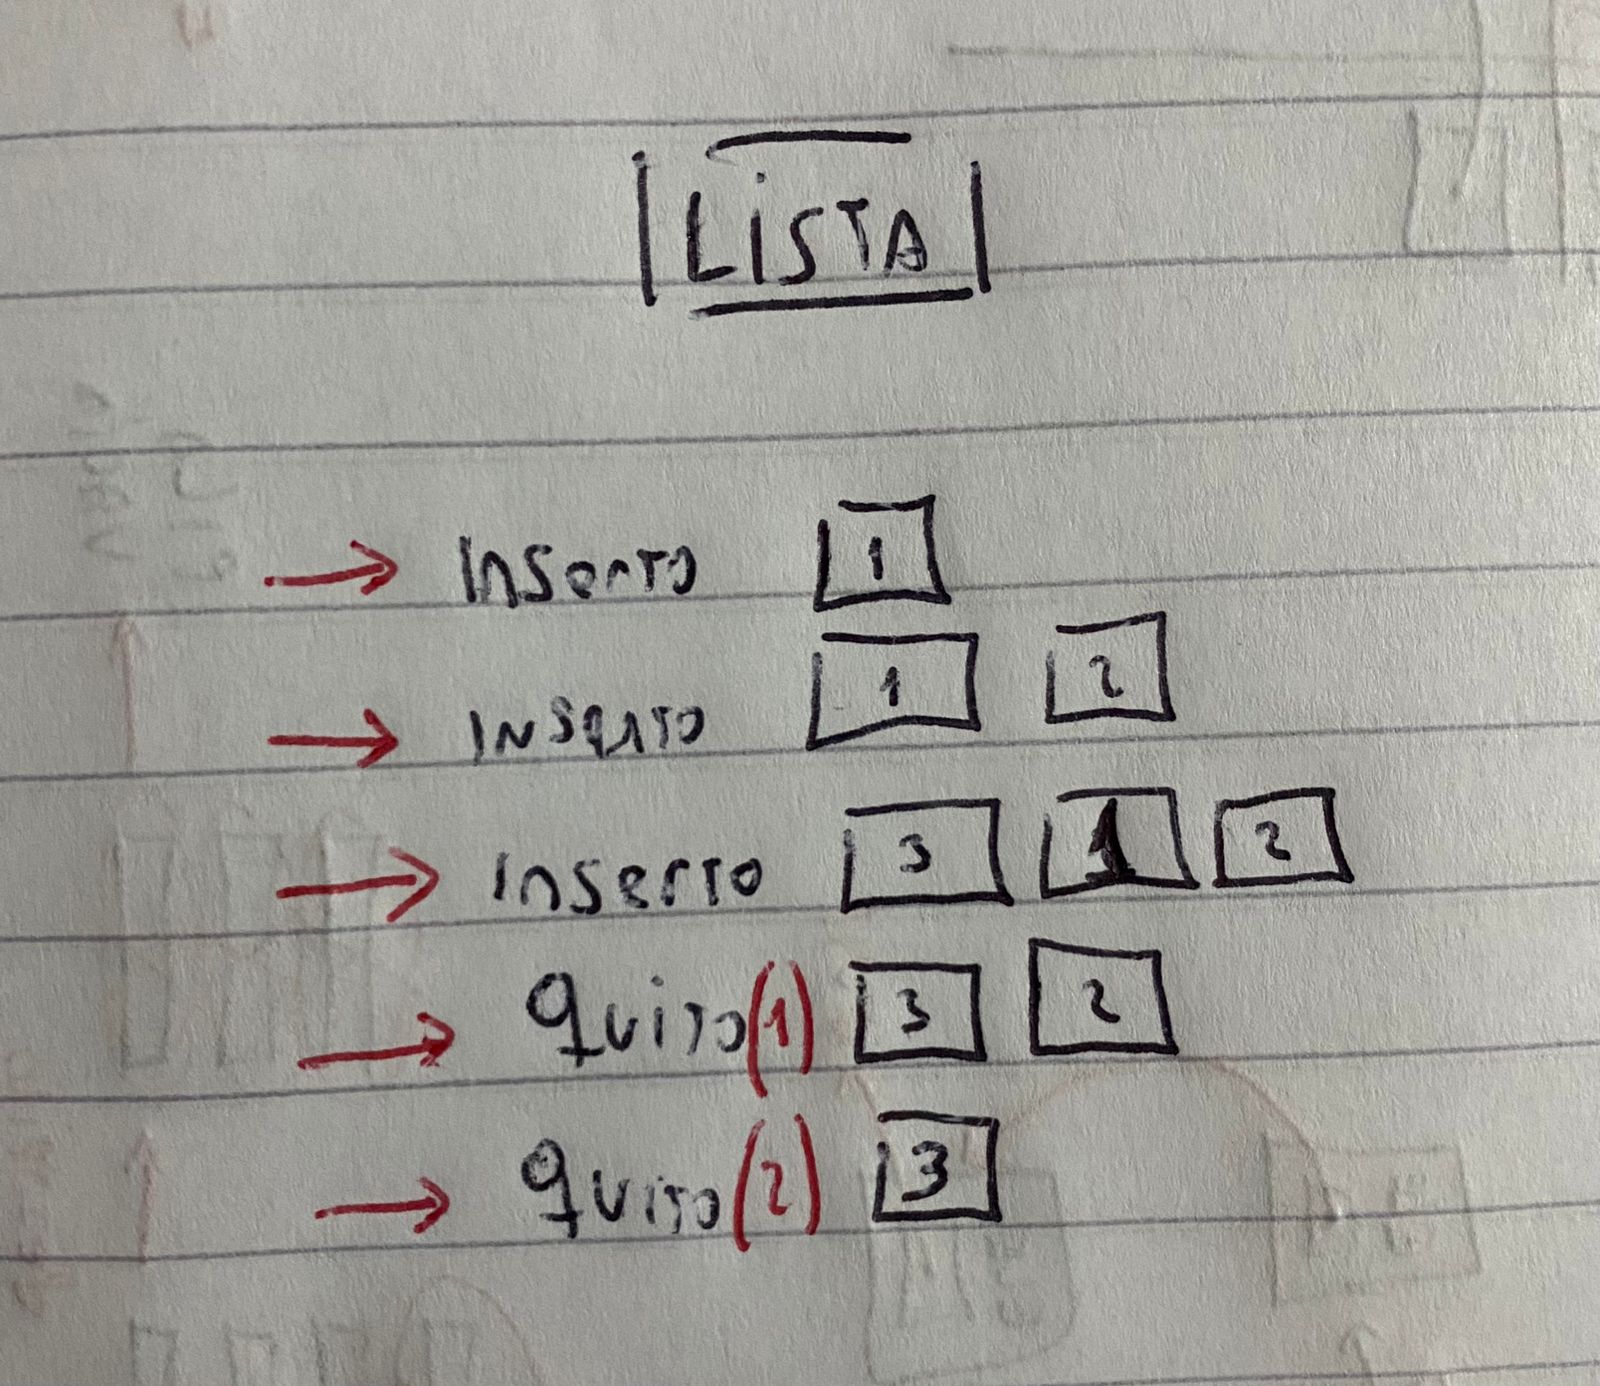 LISTA
→ Inserto 1
→ Inserto 1 2
→ Inserto 3 1 2
→ quito(1) 3 2
→ quito(2) 3